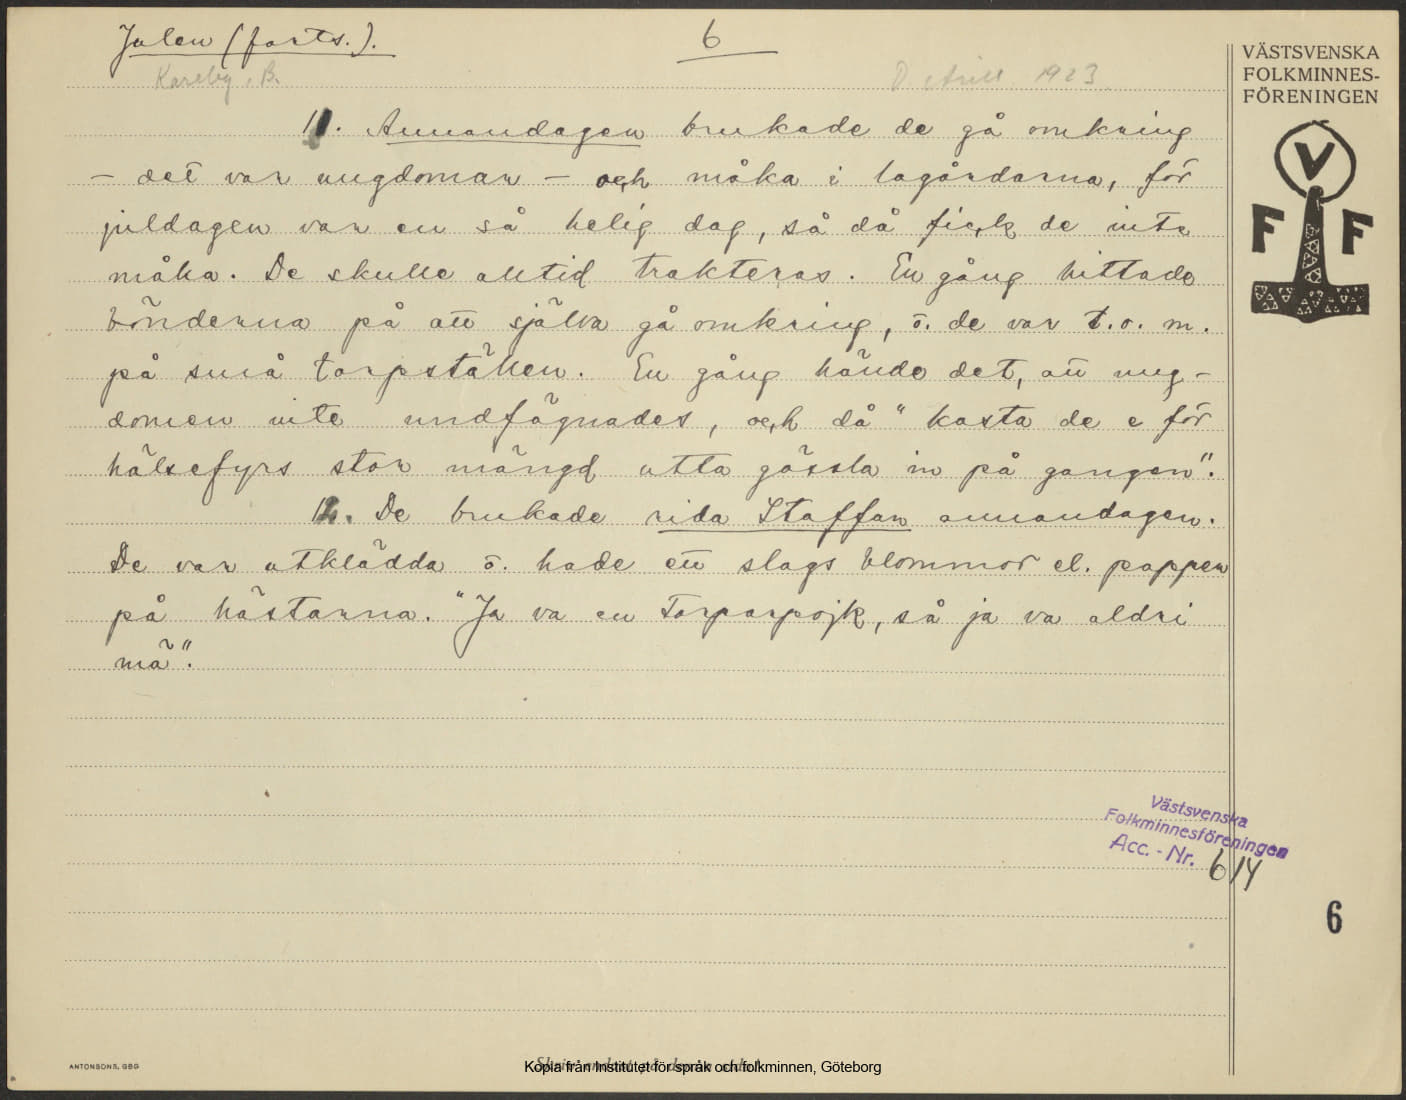 Julen (forts.).
6
Kareby, B.
1923.
VÄSTSVENSKA
FOLKMINNES-
FÖRENINGEN
V
F F
11. Annandagen brukade de gå omkring
– det var ungdomar – och måka i lagårdarna, för
juldagen var en så helig dag, så då fick de inte
måka. De skulle alltid trakteras. En gång hittade
bönderna på att själva gå omkring, o. de var t.o.m.
på små torpställen. En gång hände det, att ung-
domen inte undfägnades, och då "kasta de e för
hälsefyrs stor mängd utta gössla in på gangen".
12. De brukade rida Staffan annandagen.
De var utklädda o. hade ett slags blommor el. papper
på hästarna. "Ja va en torparpojk, så ja va aldri
mä".
Västsvenska
Folkminnesföreningen
Acc. - Nr. 614
6
ANTONSONS, GBG
Kopia från Institutet för språk och folkminnen, Göteborg